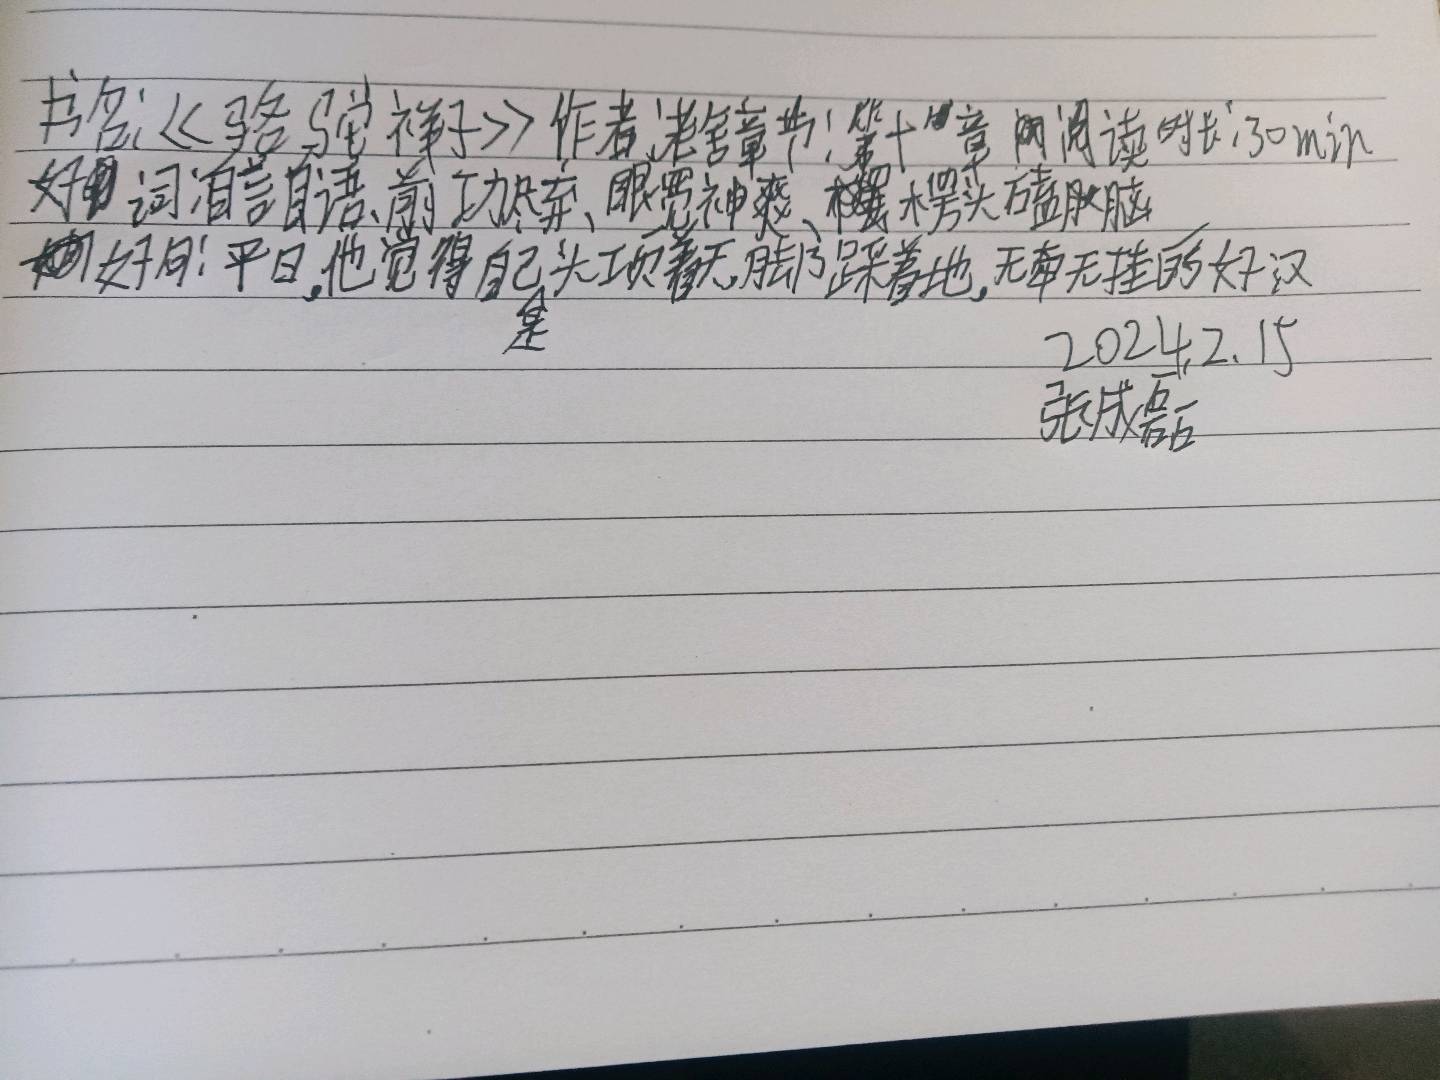 书名:《骆驼祥子》作者:老舍章节:第十章 阅读时长:30min
好词:自言自语、前功尽弃、眼亮神爽、楞头磕脑
好句:平日,他觉得自己是头顶着天,脚踩着地,无牵无挂的好汉
2024.2.15
张成磊